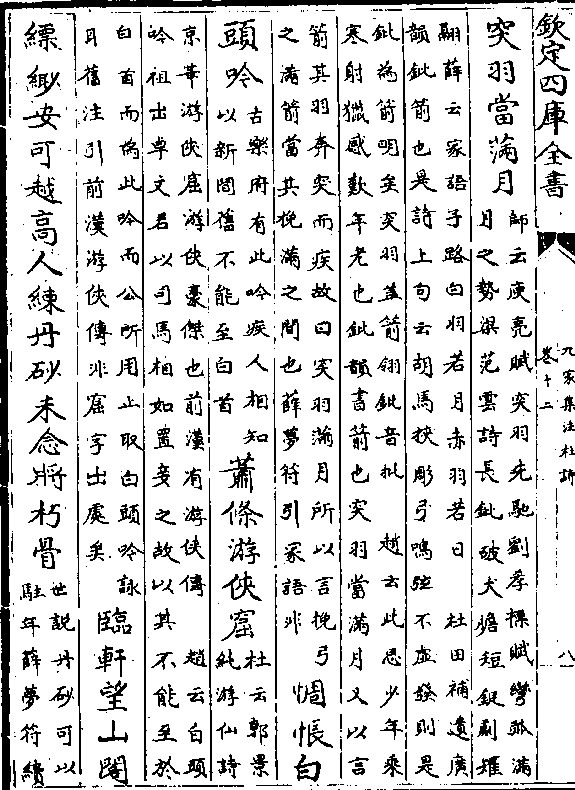 欽定四庫全書
九家集注杜詩
卷十二
八
突羽當滿月
師云庾亮賦突羽先馳劉孝標賦彎弧滿
月之勢梁范雲詩長鈚破犬膽短鋋剸
翩薛云家語子路白羽若月赤羽若日　杜田補遺廣
韻鈚箭也是詩上句云胡馬挾彫弓鳴弦不虛發則是
鈚為箭明矣突羽蓋箭翎鈚音批　趙云此思少年來
寒射獵感歎年老也鈚韻書箭也突羽當滿月又以言
箭其羽奔突而疾故曰突羽滿月所以言挽弓
之滿箭當其挽滿之間也薛夢符引家語非
惆悵白
頭吟
古樂府有此吟疾人相知
以新閒舊不能至白首
蕭條游俠窟
杜云郭景
純游仙詩
京華游俠窟游俠豪傑也前漢有游俠傳　趙云白頭
吟祖出卓文君以司馬相如置妾之故以其不能至於
白首而為此吟而公所用止取白頭吟詠
耳舊注引前漢游俠傳非窟字出處矣
臨軒望山閣
縹緲安可越高人練丹砂未念將朽骨
世説丹砂可以
駐年薛夢符續